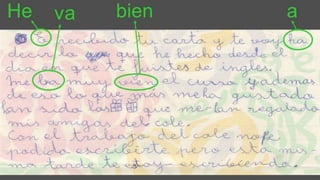 He va bien a
é recibido tu carta y te voy ha
decir lo que he hecho desde el
día en que te fuistes de inglés.
Me ba muy vien el curso y ademas
de eso lo que más me ha gustado
han sido los que me han regalado
mis amigas del cole.
Con el trabajo del cole no he
podido escribirte pero esta mis-
ma tarde te estoy escribiendo.